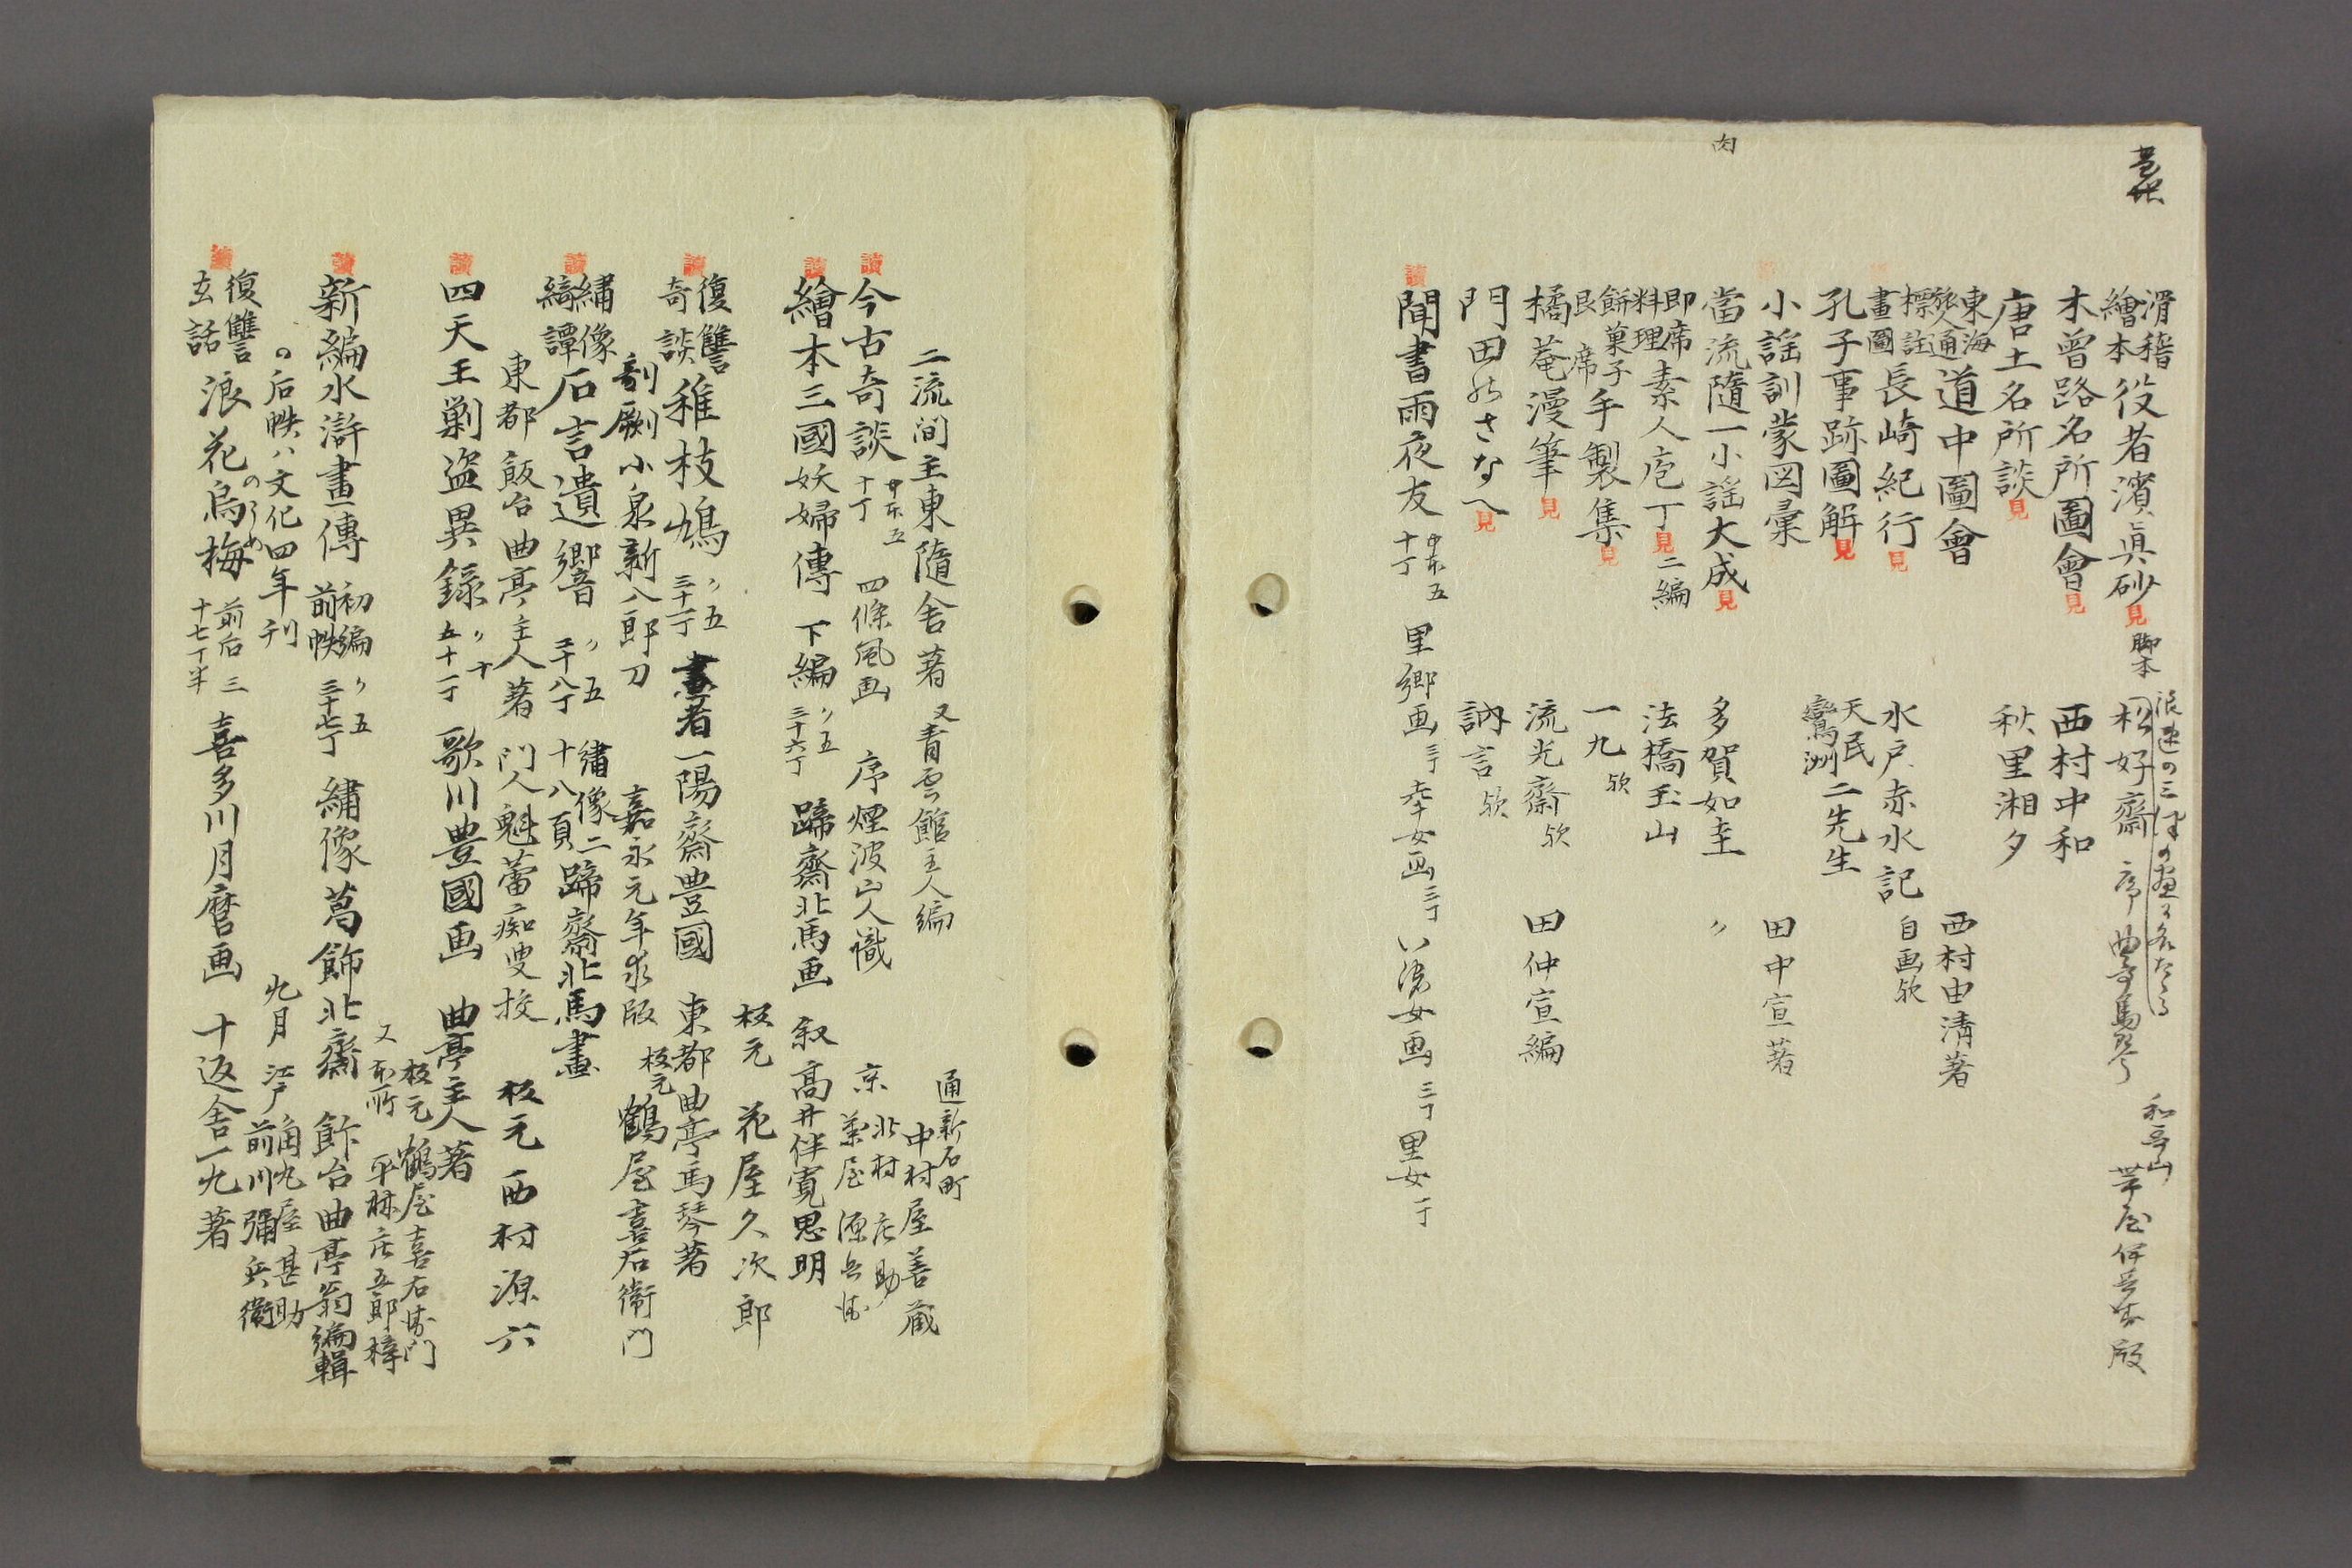 滑稽繪本役者濱眞砂 見 脚本 松好齋 序 曲亭馬琴
和哥山
木曽路名所圖會 見 西村中和
唐土名所談 見 秋里湘夕
東海旅人通道中圖會 西村由清著
標註畫圖長崎紀行 見 水戸赤水記 自画欤
孔子事跡圖解 見 天民鸞洲二先生
小謡訓蒙図彙 田中宣著
當流隨一小謡大成 見 多賀如圭 〃
即席料理素人庖丁 見 二編 法橋玉山
餅菓子艮席手製集 見 一九 欤
橘菴漫筆 見 流光齋 欤 田仲宣編
門田のさなへ 見 訥言 欤
讀 聞書雨夜友 中本五 十丁 里郷画 三丁 幸女画 三丁 い濃女画 三丁 里女 一丁
二流間主東隨舍著 又青雲館主人編
通新石町 中村屋善蔵
讀 今古奇談 中本五 十丁 四條風画 序 煙波山人識
京 北村庄助
菊屋源兵衛
讀 繪本三國妖婦傳 下編 〃五 三十六丁 蹄齋北馬画 叙 高井伴寛思明
板元 花屋久次郎
讀 復讐奇談稚枝鳩 〃五 三十丁 畫者一陽齋豊國 東都曲亭馬琴著
剞劂 小泉新八郎刀 嘉永元年求版 板元 鶴屋喜右衛門
讀 繡像綺譚石言遺響 〃五 三十八丁 繍像二十八頁 蹄齋北馬畫
東都 飯台曲亭主人著 門人魁蕾癡叟挍 板元 西村源六
讀 四天王剿盗異録 〃十 五十一丁 歌川豊國画 曲亭主人著
板元 鶴屋喜右衛門
又 本所 平林庄五郎梓
讀 新編水滸畫傳 初編前帙 〃五 三十七丁 繡像葛飾北齋 飰台曲亭翁編輯
の后帙ハ文化四年刊 九月 江戸 角丸屋甚助 前川彌兵衛
讀 復讐玄話浪花烏梅 のうめ 前后三 十七丁半 喜多川月麿画 十返舍一九著